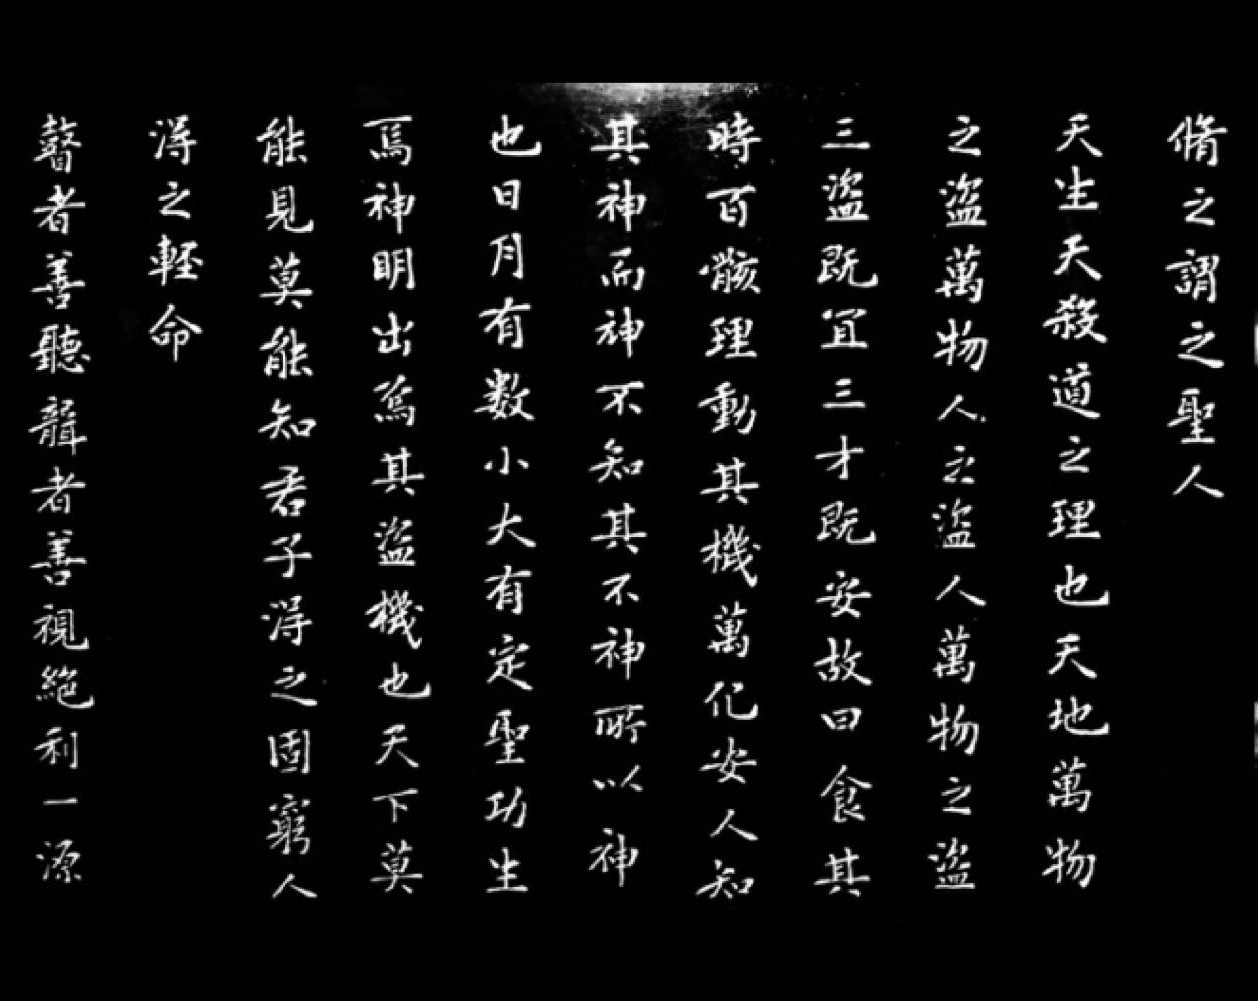 脩之謂之聖人
天生天殺道之理也天地萬物
之盜萬物人之盜人萬物之盜
三盜既冝三才既安故曰食其
時百骸理動其機萬化安人知
其神而神不知其不神所以神
也日月有数小大有定聖功生
焉神明出焉其盜機也天下莫
能見莫能知君子得之固窮人
得之輕命
瞽者善聽聾者善視絕利一源